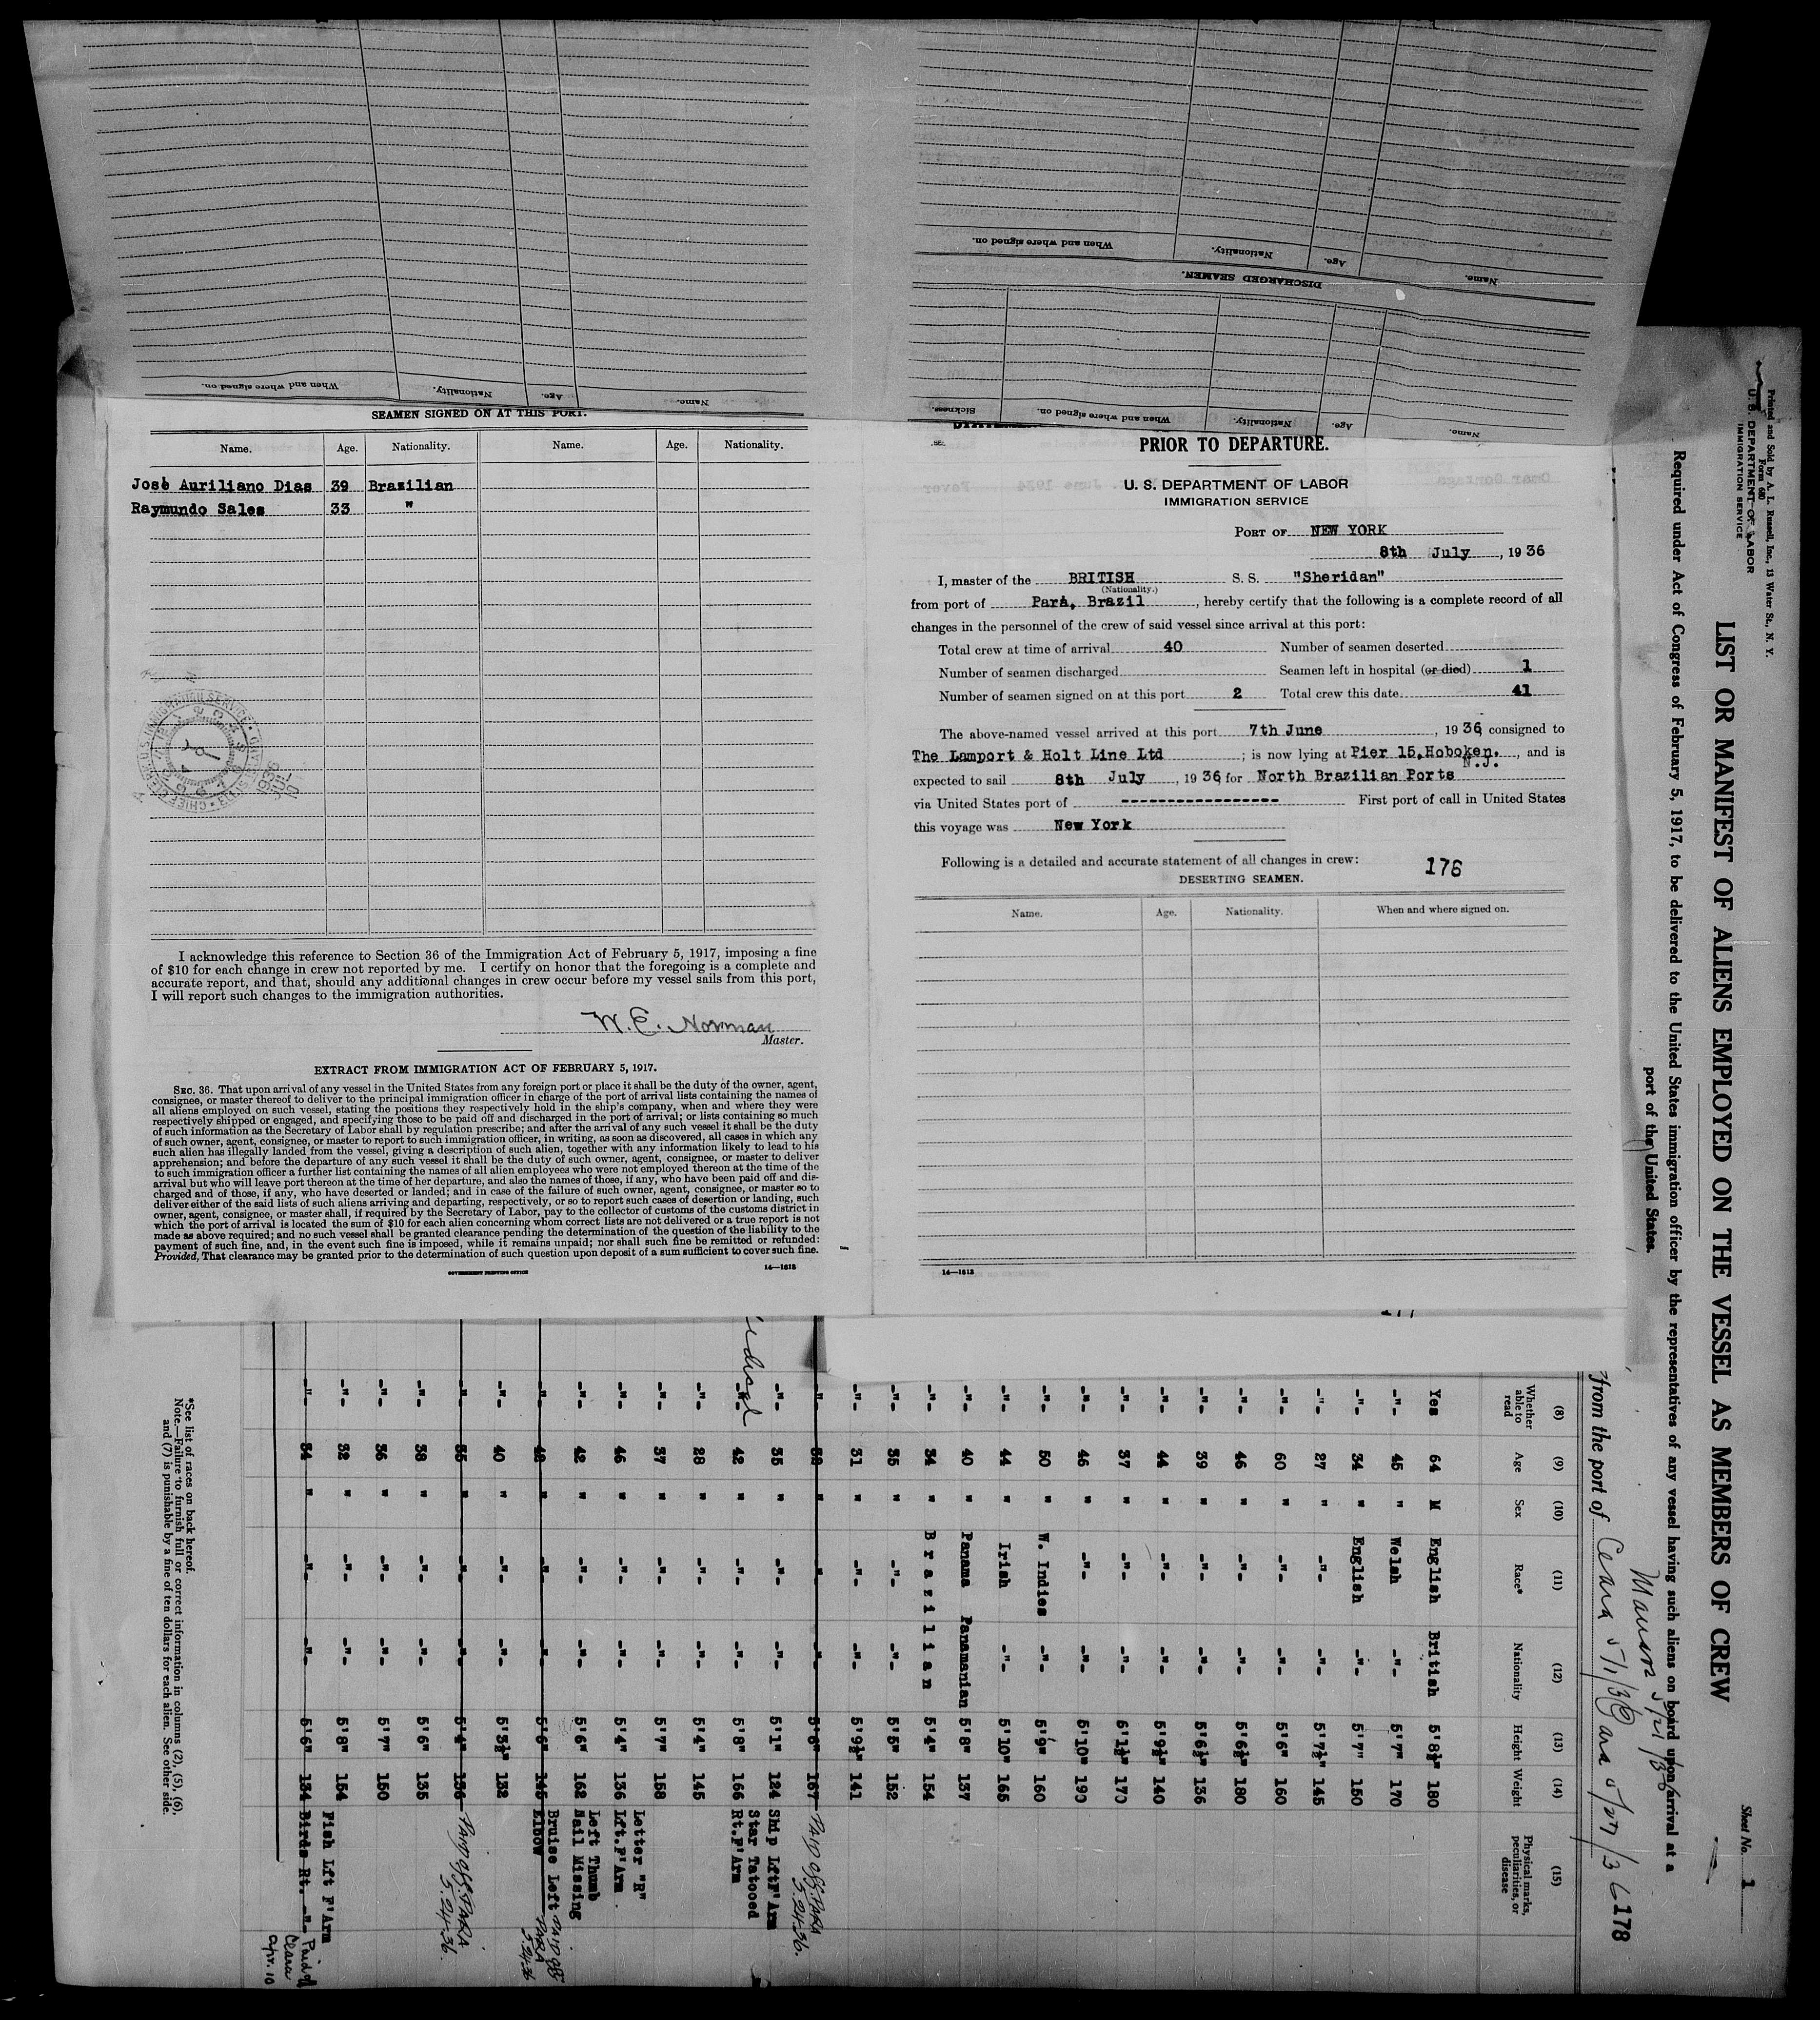 When and where signed on.
Nationality.
Age.
Name.
When and where signed on.
Nationality.
Age.
Name.
DISCHARGED SEAMEN.
Sickness.
When and where signed on.
Nationality.
Age.
Name.
SEAMEN SIGNED ON AT THIS PORT.
Name. Age. Nationality. Name. Age. Nationality.
José Auriliano Dias 39 Brazilian
Raymundo Sales 33 "
I acknowledge this reference to Section 36 of the Immigration Act of February 5, 1917, imposing a fine
of $10 for each change in crew not reported by me. I certify on honor that the foregoing is a complete and
accurate report, and that, should any additional changes in crew occur before my vessel sails from this port,
I will report such changes to the immigration authorities.
W. E. Norman
Master.
EXTRACT FROM IMMIGRATION ACT OF FEBRUARY 5, 1917.
SEC. 36. That upon arrival of any vessel in the United States from any foreign port or place it shall be the duty of the owner, agent,
consignee, or master thereof to deliver to the principal immigration officer in charge of the port of arrival lists containing the names of
all aliens employed on such vessel, stating the positions they respectively hold in the ship's company, when and where they were
respectively shipped or engaged, and specifying those to be paid off and discharged in the port of arrival; or lists containing so much
of such information as the Secretary of Labor shall by regulation prescribe; and after the arrival of any such vessel it shall be the duty
of such owner, agent, consignee, or master to report to such immigration officer, in writing, as soon as discovered, all cases in which any
such alien has illegally landed from the vessel, giving a description of such alien, together with any information likely to lead to his
apprehension; and before the departure of any such vessel it shall be the duty of such owner, agent, consignee, or master to deliver
to such immigration officer a further list containing the names of all alien employees who were not employed thereon at the time of the
arrival but who will leave port thereon at the time of her departure, and also the names of those, if any, who have been paid off and dis-
charged and of those, if any, who have deserted or landed; and in case of the failure of such owner, agent, consignee, or master so to
deliver either of the said lists of such aliens arriving and departing, respectively, or so to report such cases of desertion or landing, such
owner, agent, consignee, or master shall, if required by the Secretary of Labor, pay to the collector of customs of the customs district in
which the port of arrival is located the sum of $10 for each alien concerning whom correct lists are not delivered or a true report is not
made as above required; and no such vessel shall be granted clearance pending the determination of the question of the liability to the
payment of such fine, and, in the event such fine is imposed, while it remains unpaid; nor shall such fine be remitted or refunded:
Provided, That clearance may be granted prior to the determination of such question upon deposit of a sum sufficient to cover such fine.
GOVERNMENT PRINTING OFFICE 14—1613
PRIOR TO DEPARTURE.
U. S. DEPARTMENT OF LABOR
IMMIGRATION SERVICE
PORT OF NEW YORK
8th July, 1936
I, master of the BRITISH S. S. "Sheridan"
(Nationality.)
from port of Pará, Brazil, hereby certify that the following is a complete record of all
changes in the personnel of the crew of said vessel since arrival at this port:
Total crew at time of arrival 40 Number of seamen deserted
Number of seamen discharged Seamen left in hospital (or died) 1
Number of seamen signed on at this port 2 Total crew this date 41
The above-named vessel arrived at this port 7th June, 1936, consigned to
The Lamport & Holt Line Ltd; is now lying at Pier 15, Hoboken. N.J., and is
expected to sail 8th July, 1936, for North Brazilian Ports
via United States port of ---------------- First port of call in United States
this voyage was New York
Following is a detailed and accurate statement of all changes in crew: 176
DESERTING SEAMEN.
Name. Age. Nationality. When and where signed on.
14—1613
Printed and Sold by A. L. Russell, Inc., 13 Water St., N. Y.
Form 680
U. S. DEPARTMENT OF LABOR
IMMIGRATION SERVICE
Sheet No. 1
LIST OR MANIFEST OF ALIENS EMPLOYED ON THE VESSEL AS MEMBERS OF CREW
Required under Act of Congress of February 5, 1917, to be delivered to the United States immigration officer by the representatives of any vessel having such aliens on board upon arrival at a
port of the United States.
from the port of Ceara 5/1/36 178
(8) (9) (10) (11) (12) (13) (14) (15)
Whether able to read Age Sex Race* Nationality Height Weight Physical marks, peculiarities, or disease
Yes 64 M English British 5'8½" 180
-"- 45 " Welsh -"- 5'7" 170
-"- 34 " English -"- 5'7" 150
-"- 27 " -"- -"- 5'7½" 145
-"- 60 " -"- -"- 5'6" 160
-"- 46 " -"- -"- 5'6½" 180
-"- 39 " -"- -"- 5'6½" 136
-"- 44 " -"- -"- 5'9½" 140
-"- 37 " -"- -"- 6'1½" 170
-"- 46 " -"- -"- 5'10" 190
-"- 50 " W. Indies -"- 5'9" 160
-"- 44 " Irish -"- 5'10" 165
-"- 40 " Panama Panamanian 5'8" 137
-"- 34 " Brazilian 5'4" 154
-"- 35 " -"- -"- 5'5" 152
-"- 31 " -"- -"- 5'9½" 141
-"- " -"- -"- 5'8" 167 PAID OFF. PARA 5.24.36.
-"- 35 " -"- -"- 5'1" 124 Ship Lft F'Arm
-"- 42 " -"- -"- 5'8" 166 Star Tatooed Rt.F'Arm
-"- 28 " -"- -"- 5'4" 145
-"- 37 " -"- -"- 5'7" 158
-"- 46 " -"- -"- 5'4" 136 Letter "R" Lft.F'Arm.
-"- 42 " -"- -"- 5'6" 162 Left Thumb Nail Missing
-"- " -"- -"- 5'6" 145 Bruise Left Elbow PAID OFF PARA 5.24.36
-"- 40 " -"- -"- 5'3½" 132
-"- 55 " -"- -"- 5'4" 136 PAID OFF. PARA 5.24.36.
-"- 38 " -"- -"- 5'6" 135
-"- 36 " -"- -"- 5'7" 150
-"- 32 " -"- -"- 5'8" 154 Fish Lft F'Arm
-"- 34 " -"- -"- 5'6" 134 Birds Rt. -"- Paid off Ceara Apr. 10
*See list of races on back hereof.
Note.—Failure to furnish full or correct information in columns (2), (5), (6),
and (7) is punishable by a fine of ten dollars for each alien. See other side.